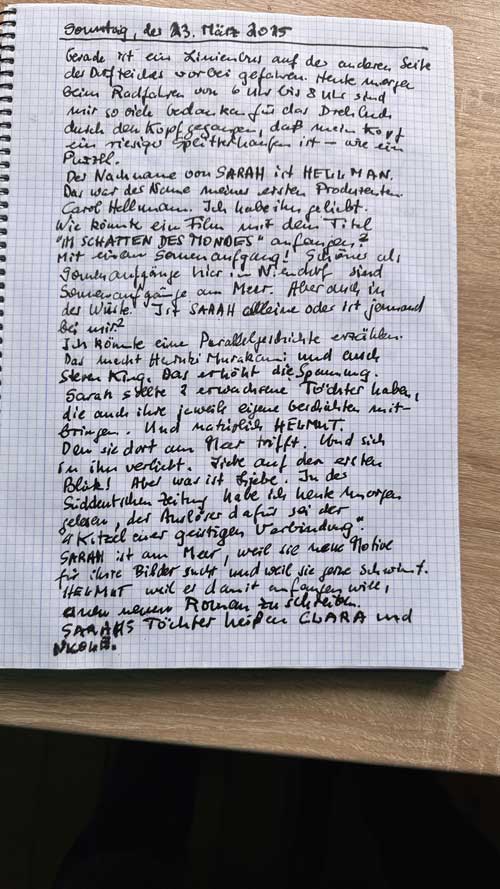 Sonntag, des 23. März 2025
Gerade ist ein Linienbus auf der anderen Seite
des Dorfteiches vorbei gefahren. Heute morgen
beim Radfahren von 6 Uhr bis 8 Uhr sind
mir so viele Gedanken für das Drehbuch
durch den Kopf gegangen, daß mein Kopf
ein riesiger Splitterhaufen ist – wie ein
Puzzle.
Der Nachname von SARAH ist HELLMAN.
Das war der Name meiner ersten Produzenten.
Carol Hellmann. Ich habe ihn geliebt.
Wie könnte ein Film mit dem Titel
"IM SCHATTEN DES MONDES" anfangen?
Mit einem Sonnenaufgang! Schöner als
Sonnenaufgänge hier in Niendorf sind
Sonnenaufgänge am Meer. Aber auch in
der Wüste. Ist SARAH alleine oder ist jemand
bei mir?
Ich könnte eine Parallelgeschichte erzählen.
Das macht Haruki Murakami und auch
Steven King. Das erhöht die Spannung.
Sarah sollte 2 erwachsene Töchter haben,
die auch ihre jeweils eigene Geschichten mit-
bringen. Und natürlich HELMUT.
Den sie dort am Meer trifft. Und sich
in ihn verliebt. Liebe auf den ersten
Blick! Aber was ist Liebe. In der
Süddeutschen Zeitung habe ich heute morgen
gelesen, der Auslöser dafür sei der
"Kitzel einer geistigen Verbindung".
SARAH ist am Meer, weil sie neue Motive
für ihre Bilder sucht und weil sie gerne schwimmt.
HELMUT weil er damit anfangen will,
einen neuen Roman zu schreiben.
SARAHS Töchter heißen CLARA und